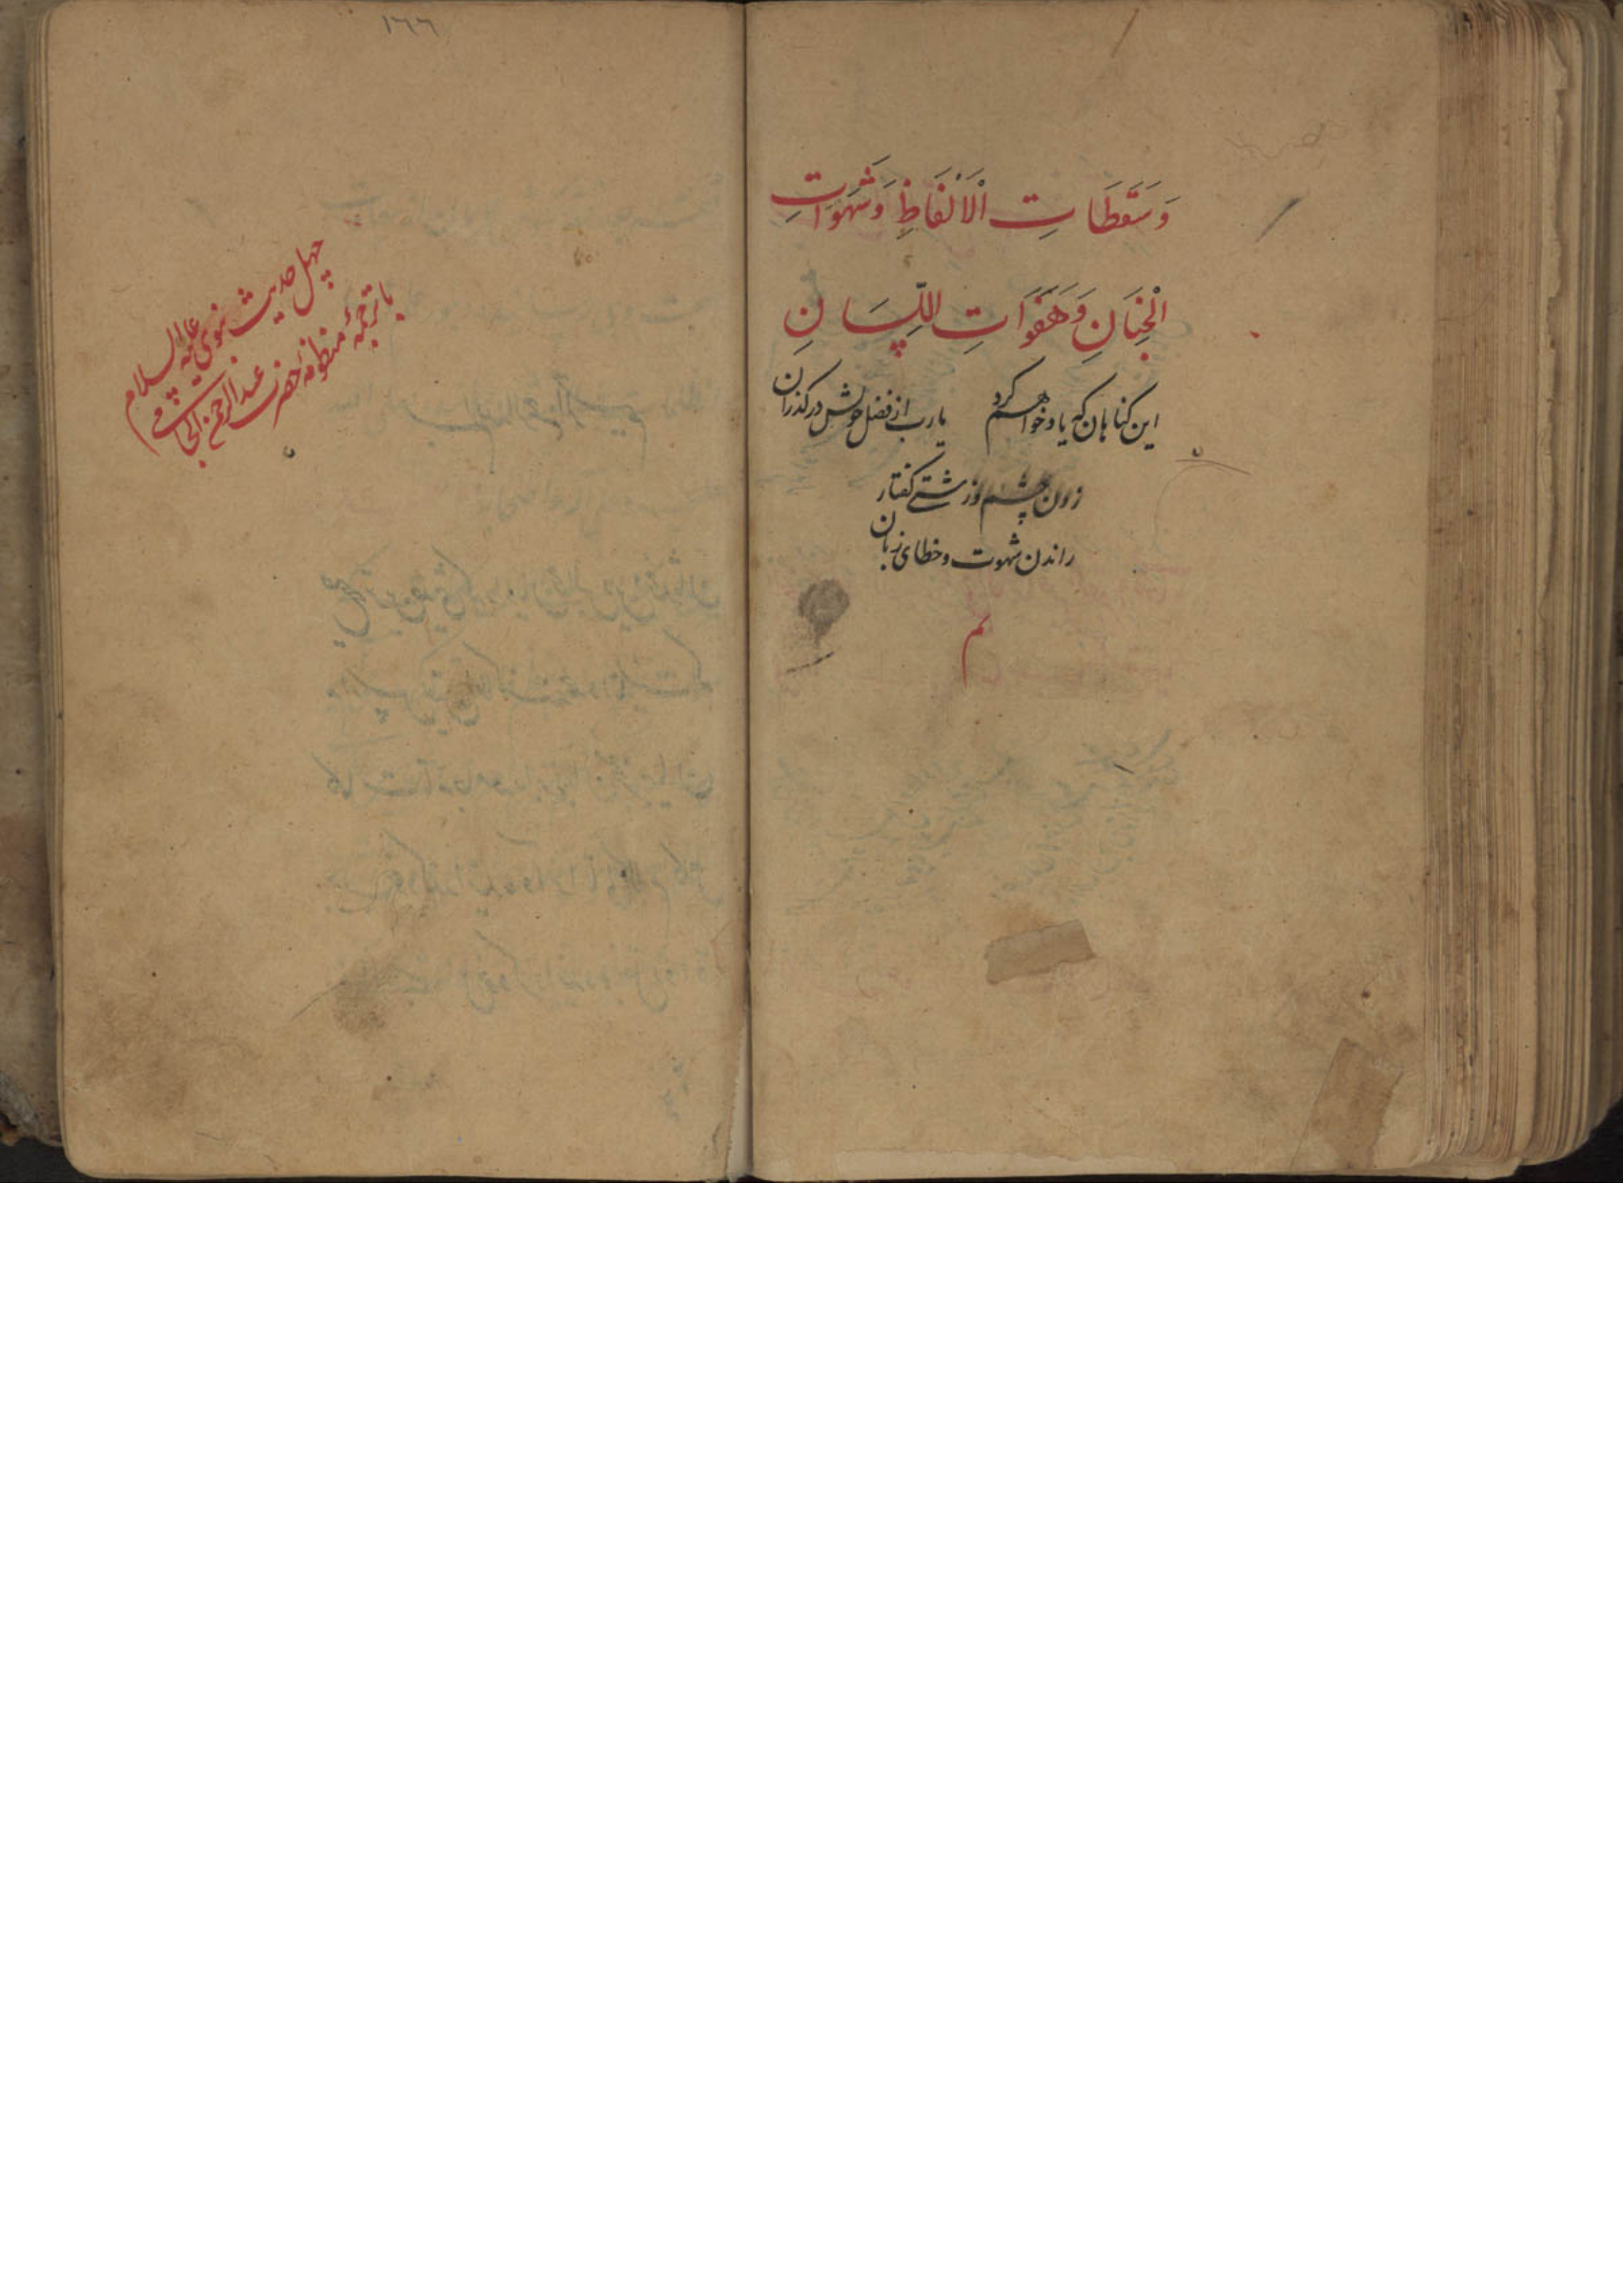 وَسَقَطَاتِ الْاَلْفَاظِ وَشَهَوَاتِ
الْجَنَانِ وَهَفَوَاتِ اللِّسَانِ
این کناهان که یاد خواهم کرد یا رب از فضل خویش درکذران
زدن چشم وزشتی کفتار
راندن شهوت وخطای زبان
تم
١٦٦
چهل حدیث نبوی علیه السلام
با ترجمهٔ منظومهٔ حضرت عبد الرحمن الجامی